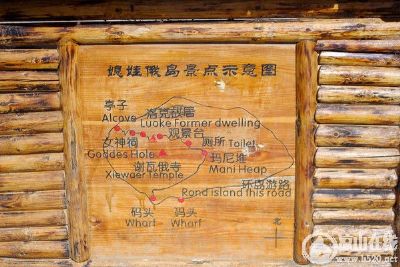 媳娃俄岛景点示意图
亭子
Alcove
洛克故居
Luoke Former dwelling
观景台
女神祠
Goddes Hole
厕所
Toilet
玛尼堆
Mani Heap
谢瓦俄寺
Xiewaer Temple
环岛游路
Rond island this road
码头
Wharf
码头
Wharf
北
www.lj520.net